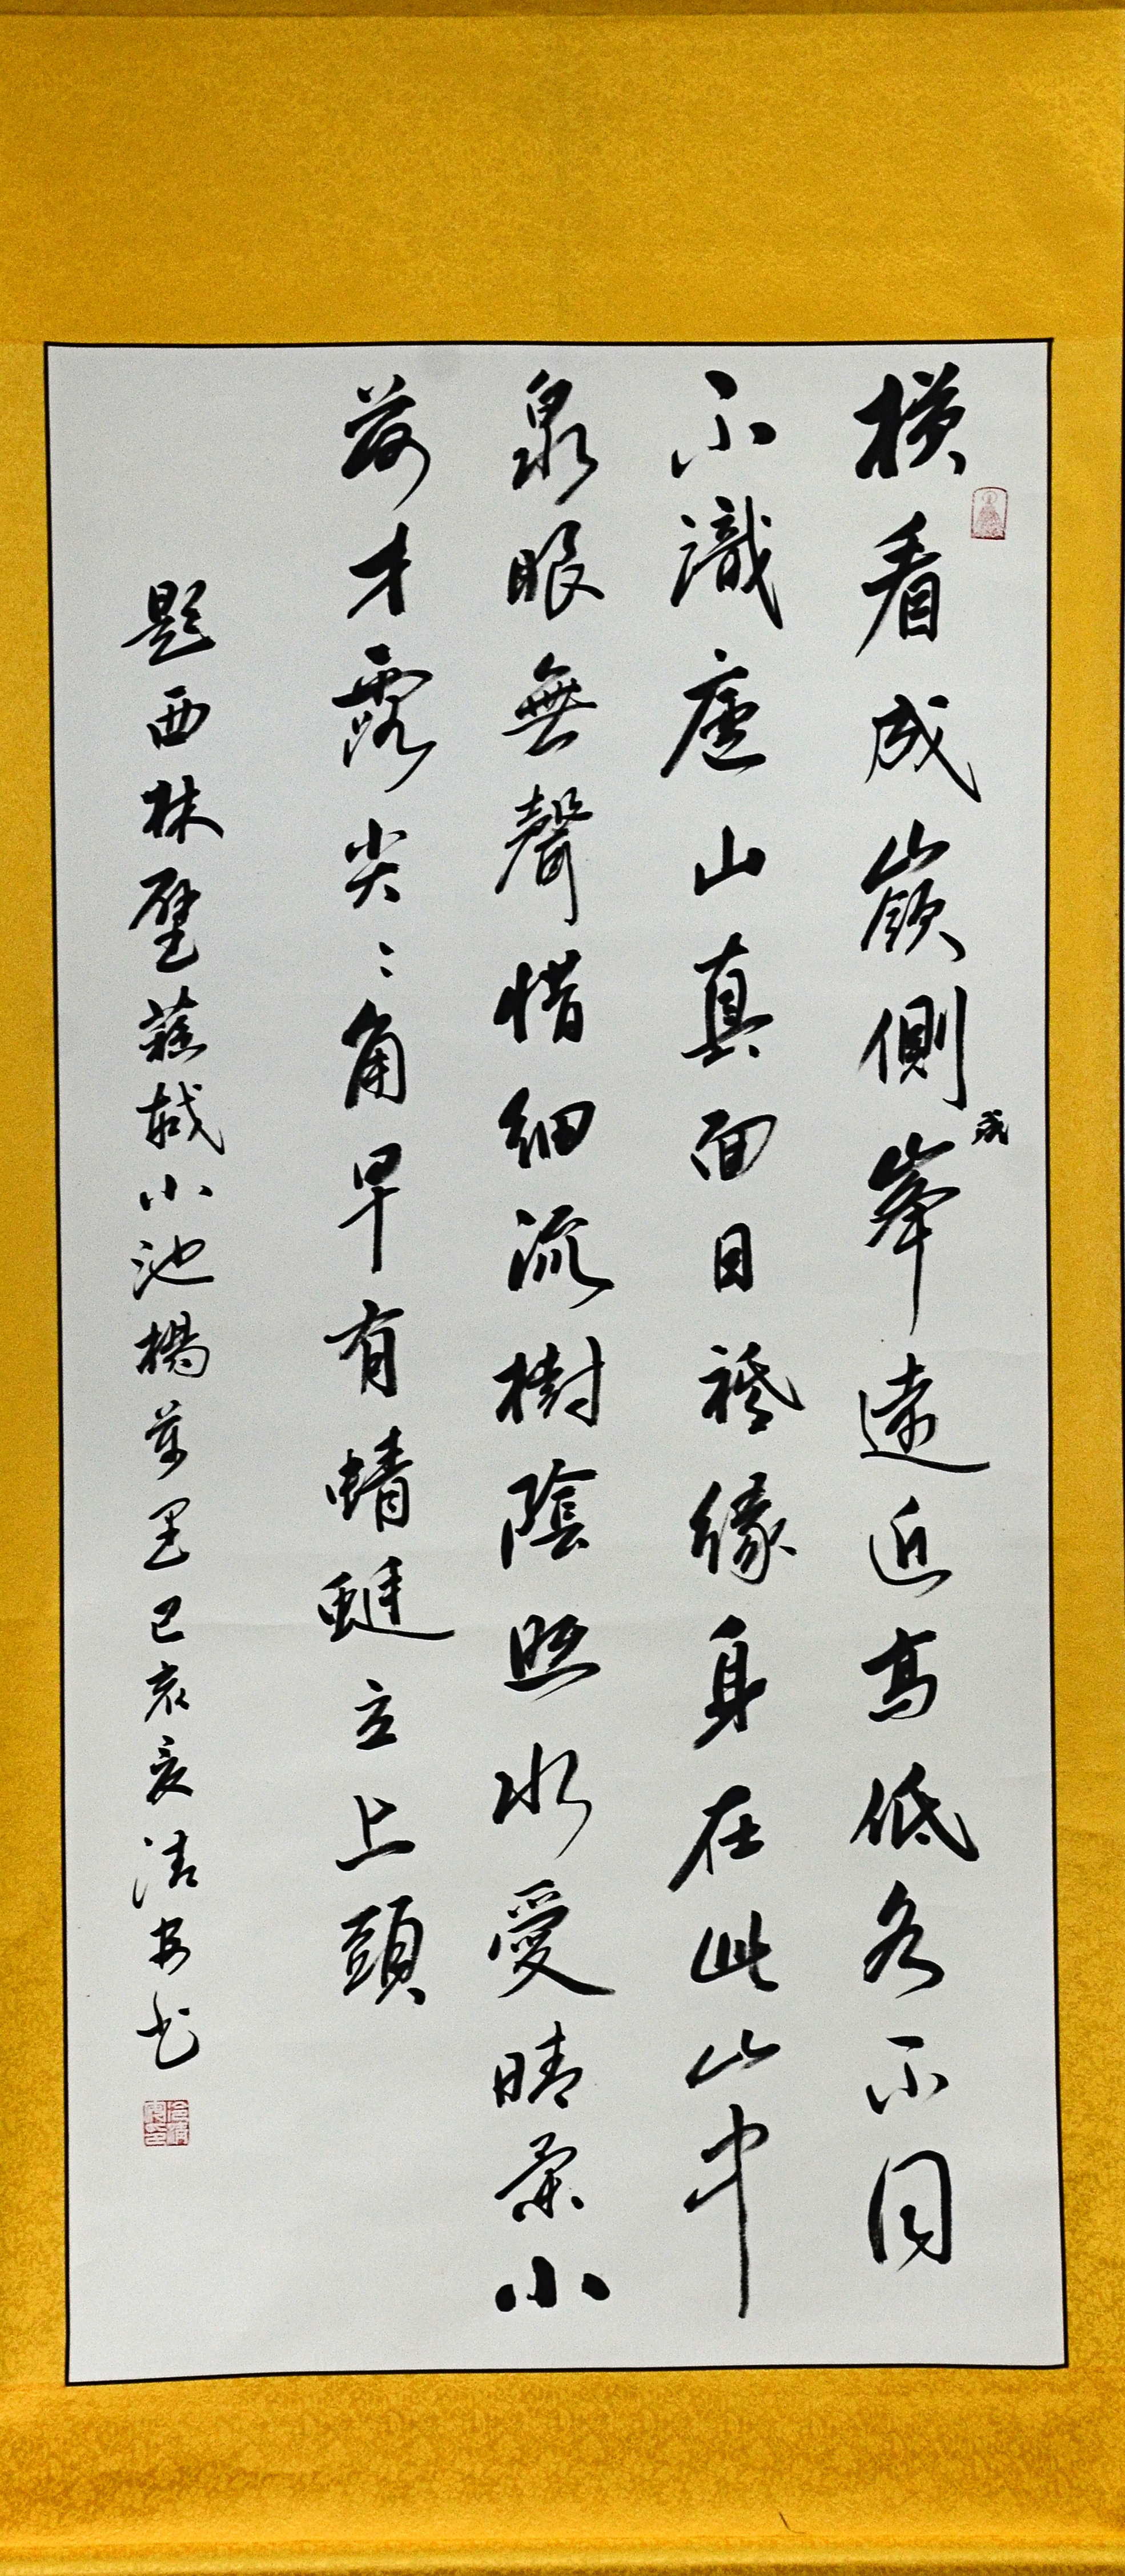 橫看成嶺側成峯遠近高低各不同
不識廬山真面目祗緣身在此山中
泉眼無聲惜細流樹陰照水愛晴柔小
荷才露尖〻角早有蜻蜓立上頭
題西林壁蘇軾小池楊萬里己亥夏清安书